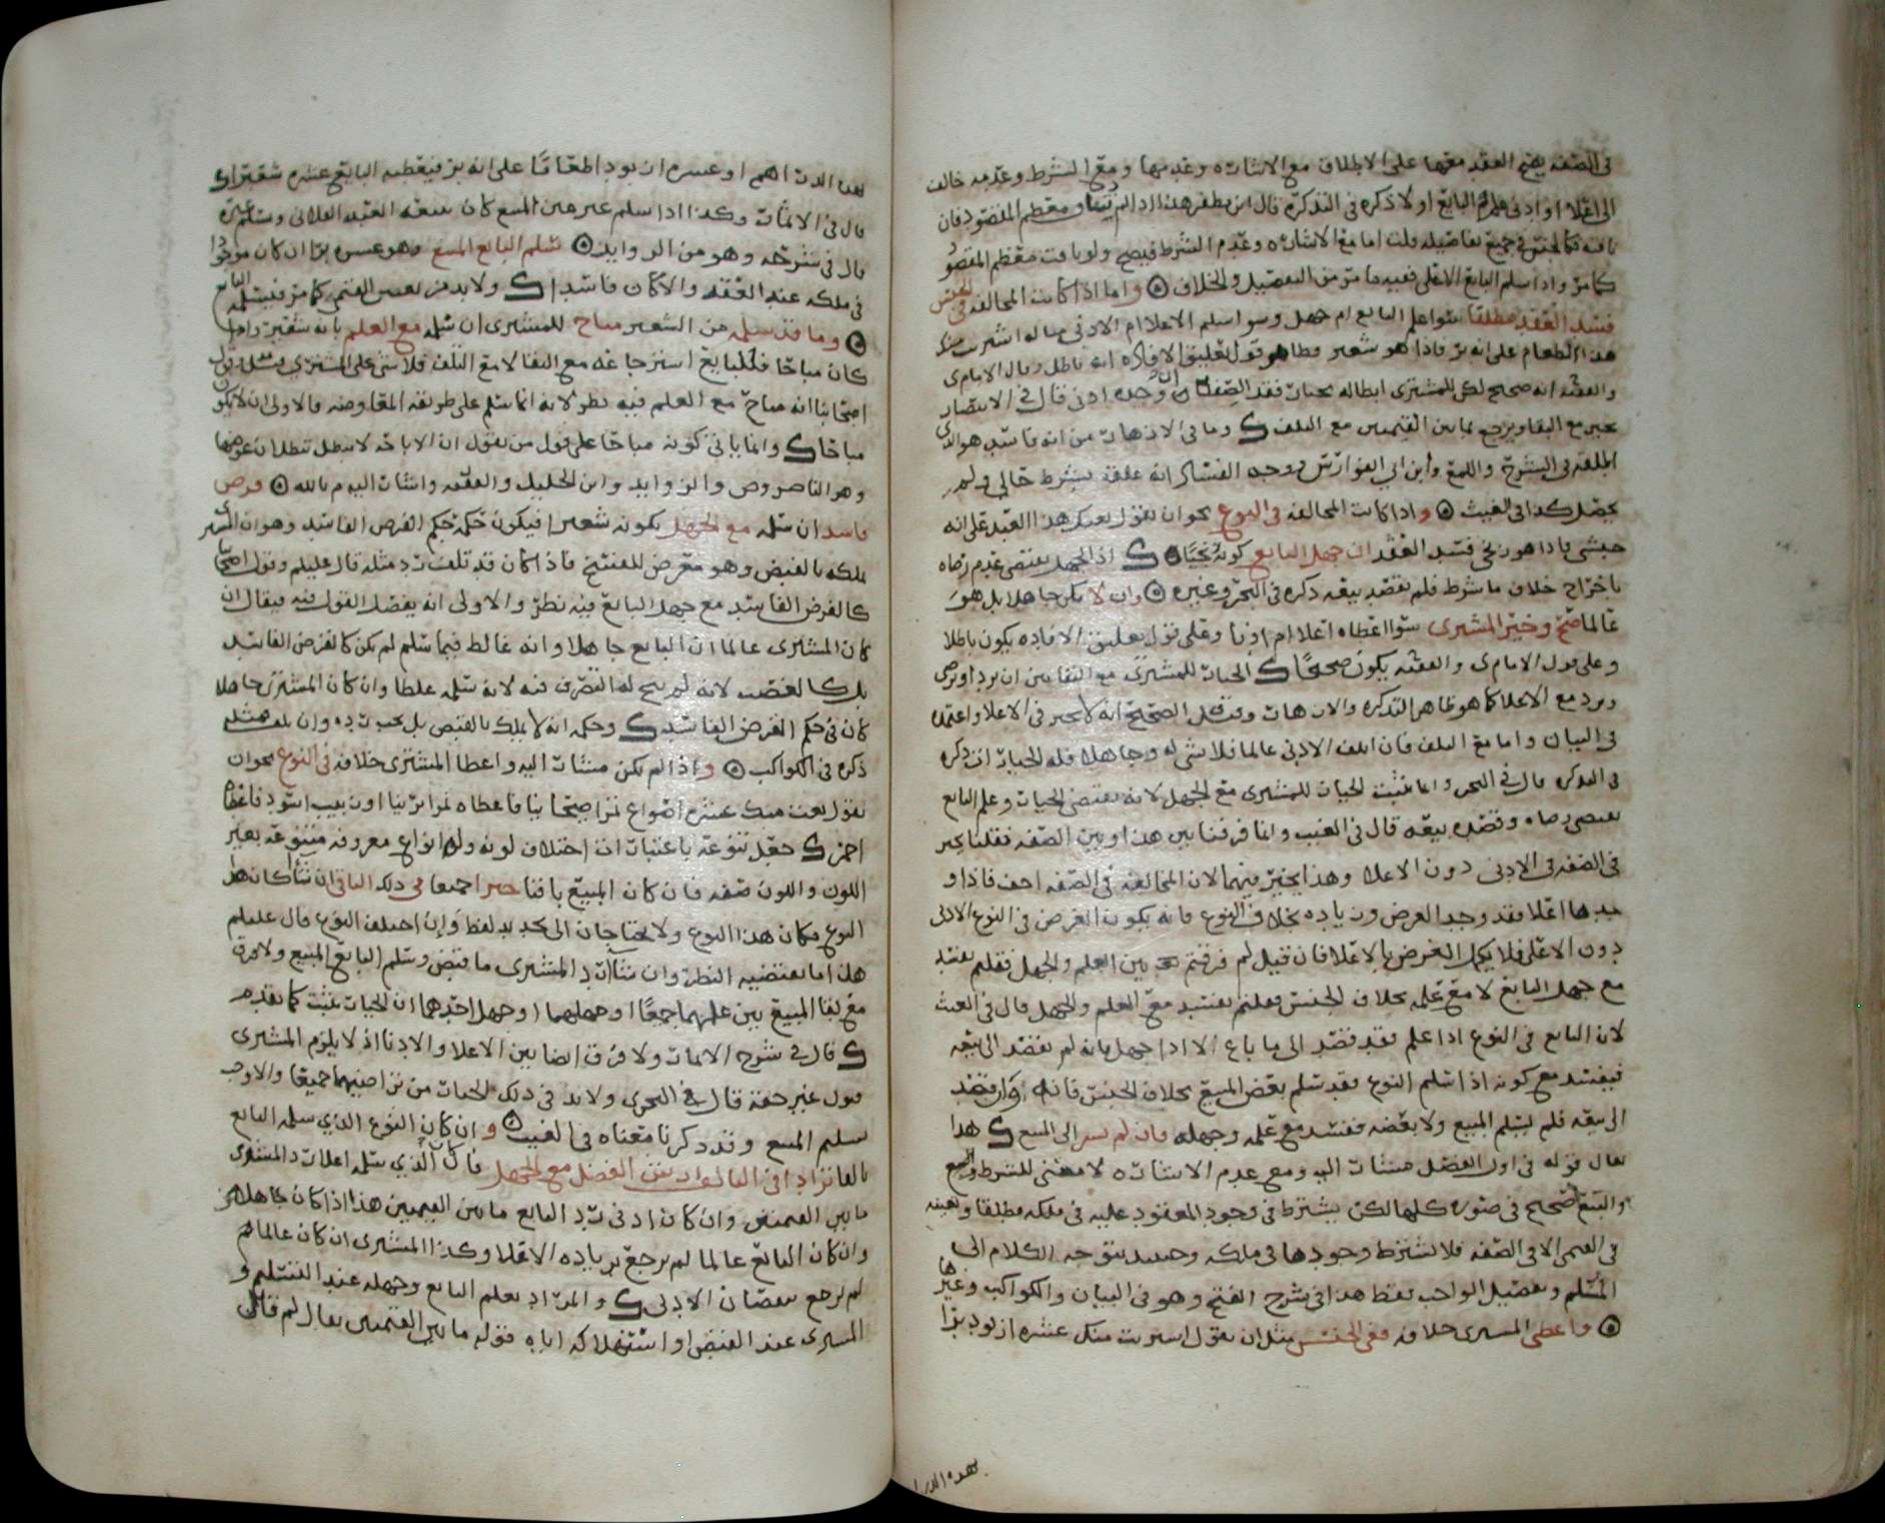 في الصفه يصح العقد معها على الاطلاق مع الاشاره وعدمها ومع الشرط وعدمه خالف
الى اعلا او ادنى علم البايع او لا ذكره في التذكره قال ابن مظفر هذا اذا لم ومعظم المقصود فان
فكالجنس في جميع تفاصيله قلت اما مع الاشاره وعدم الشرط فيصح ولو فات معظم المقصود
كما مر واذا سلم البايع الاعلى ففيه ما مر من التفصيل والخلاف واما اذا كانت المخالفه في الجنس
فسد العقد مطلقا سوا علم البايع ام جهل وسوا سلم الاعلا ام الادنى مثاله اشتريت منك
هذا الطعام على انه بر فاذا هو شعير وظاهر قول تعليق الافاده انه باطل وقال الامام ي
والفقيه انه صحيح لكن للمشتري ابطاله بخيار فقد الصفه ان وجده ادنى قال في الانتصار
يخير مع البقا ويرجع بما بين القيمتين مع التلف ك وما في الازهار من انه فاسد هو الذي
اطلقه في الشرح واللمع وابن ابي الفوارس ووجه الفساد انه علقه بشرط حالي ولم
يحصل كذا في الغيث واذا كانت المخالفه في النوع نحو ان يقول بعتك هذا العبد على انه
حبشي فاذا هو زنجي فسد العقد ان جهل البايع كونه زنجيا ك اذ الجهل يقتضي عدم رضاه
باخراج خلاف ما شرط فلم يقصد بيعه ذكره في البحر وغيره وان لا يكن جاهلا بل هو
عالما صح وخير المشتري سوا اعطاه اعلا ام ادنا وعلى قول تعليق الافاده يكون باطلا
وعلى قول الامام ي والفقيه يكون صحيحا ك الخيار للمشتري مع البقا بين ان يرد او يرضى
ويرد مع الاعلا كما هو ظاهر التذكره والازهار وقيل الصحيح انه لا يخير في الاعلا واعتمده
في البيان واما مع التلف فان اتلف الادنى عالما فلا شي له وجاهلا فله الخيار ذكره
في التذكره قال في البحر وانما يثبت الخيار للمشتري مع الجهل لانه يقتضي الخيار وعلم البايع
يقتضي رضاه وقصده بيعه قال في الغيث وانما فرقنا بين هذا وبين الصفه فقلنا يخير
في الصفه في الادنى دون الاعلا وهذا يخير فيهما لان المخالفه في الصفه اخف فاذا و
جدها اعلا فقد وجد الغرض وزياده بخلاف النوع فانه يكون الغرض في النوع الادنى
دون الاعلى فلا يكمل الغرض بالاعلا فان قيل لم فرقتم بين العلم والجهل فقلتم يفسد
مع جهل البايع لا مع علمه بخلاف الجنس فقلتم يفسد مع العلم والجهل قال في الغيث
لان البايع في النوع اذا علم فقد قصد الى ما باع الا اذا جهل فانه لم يقصد الى بيعه
فيفسد مع كونه اذا سلم النوع فقد سلم بعض المبيع بخلاف الجنس فانه وان قصد
الى بيعه فلم يسلم المبيع ولا بعضه ففسد مع علمه وجهله فان لم يشر الى المبيع ك هذا
يقال قوله في اول الفصل مشار اليه ومع عدم الاشاره لا معنى للشرط والبيع
والبيع صحيح في صوره كلها لكن يشترط في وجود المعقود عليه في ملكه مطلقا وتعيينه
في القيمي الا في الصفه فلا يشترط وجودها في ملكه وحينئذ يتوجه الكلام الى
المسلم وتفصيل الواجب فقط هذا في شرح الفتح وهو في البيان والكواكب وغيرها
واعطى المشتري خلافه ففي الجنس مثل ان يقول اشتريت منك عشره ازبود برا
بهذه الدرا
بهذه الدراهم او عشره ازبود اطعاما على انه بر فيعطيه البايع عشره شعيرا ك
قال في الاثمار وكذا اذا سلم غير عين المبيع كان يبيعه العبد الفلاني وسلم غيره
قال في شرحه وهو من الزوايد سلم البايع المبيع وهو عشره برا ان كان موجودا
في ملكه عند العقد والا كان فاسدا ك ولا بد من تعيين القيمي كما مر فيسلمه البايع
وما قد سلمه من الشعير مباح للمشتري ان سلمه مع العلم بانه شعير واذا
كان مباحا فللبايع استرجاعه مع البقا لا مع التلف فلا شي على المشتري وقول
اصحابنا انه مباح مع العلم فيه نظر لانه انما سلم على طريقه المعاوضه فالاولى ان لا يكون
مباحا ك وانما ياتي كونه مباحا على قول من يقول ان الاباحه لا تبطل ببطلان عوضها
وهو الناصر وص والزوايد وابن الخليل والفقيه واشار اليه م بالله وقرض
فاسد ان سلمه مع الجهل بكونه شعيرا فيكون حكمه حكم القرض الفاسد وهو ان المشتري
يملكه بالقبض وهو معرض للفسخ فاذا كان قد تلف رد مثله قال عليلم وقول اصحابنا
كالقرض الفاسد مع جهل البايع فيه نظر والاولى انه يفصل القول فيه فيقال ان
كان المشتري عالما ان البايع جاهلا وانه غالط فيما سلم لم يكن كالقرض الفاسد
بل كالغصب لانه لم يبح له التصرف فيه لانه سلمه غلطا وان كان المشتري جاهلا
كان في حكم القرض الفاسد ك وحكمه انه لا يملك بالقبض بل يجب رده وان تلف فمثله
ذكره في الكواكب واذا لم يكن مشار اليه واعطا المشتري خلافه في النوع نحو ان
يقول بعت منك عشره اصواع تمرا صيحانيا فاعطاه تمرا برنيا او زبيب اسود فاعطاه
احمر ك جعل تنوعه باعتبار اختلاف لونه وله انواع معروفه متنوعه بغير
اللون واللون صفه فان كان المبيع باقيا خيرا جميعا في ذلك الباقي ان شاا كان هذا
النوع مكان هذا النوع ولا يحتاجان الى تجديد لفظ وان اختلف النوع قال عليلم
هذا ما يقتضيه النظر وان شاا رد المشتري ما قبض وسلم البايع المبيع ولا فرق
مع بقا المبيع بين علمهما جميعا او جهلهما او جهل احدهما ان الخيار يثبت كما تقدم
ك قال في شرح الاثمار ولا فرق ايضا بين الاعلا والادنا اذ لا يلزم المشتري
قبول غير حقه قال في البحري ولا بد في ذلك الخيار من تراضيهما جميعا والا وجب
تسليم المبيع وقد ذكرنا معناه في الغيث وان كان النوع الذي سلمه البايع
تالفا ترادا في التالف ارش الفضل مع الجهل فان كان الذي سلمه اعلا رد المشتري
ما بين القيمتين وان كان ادنى رد البايع ما بين القيمتين هذا اذا كان جاهلا
وان كان البايع عالما لم يرجع بزياده الاعلا وكذا المشتري ان كان عالما
لم يرجع بنقصان الادنى ك والمراد بعلم البايع وجهله عند التسليم و
المشتري عند القبض او استهلاكه اياه فقوله ما بين القيمتين يقال لم قال